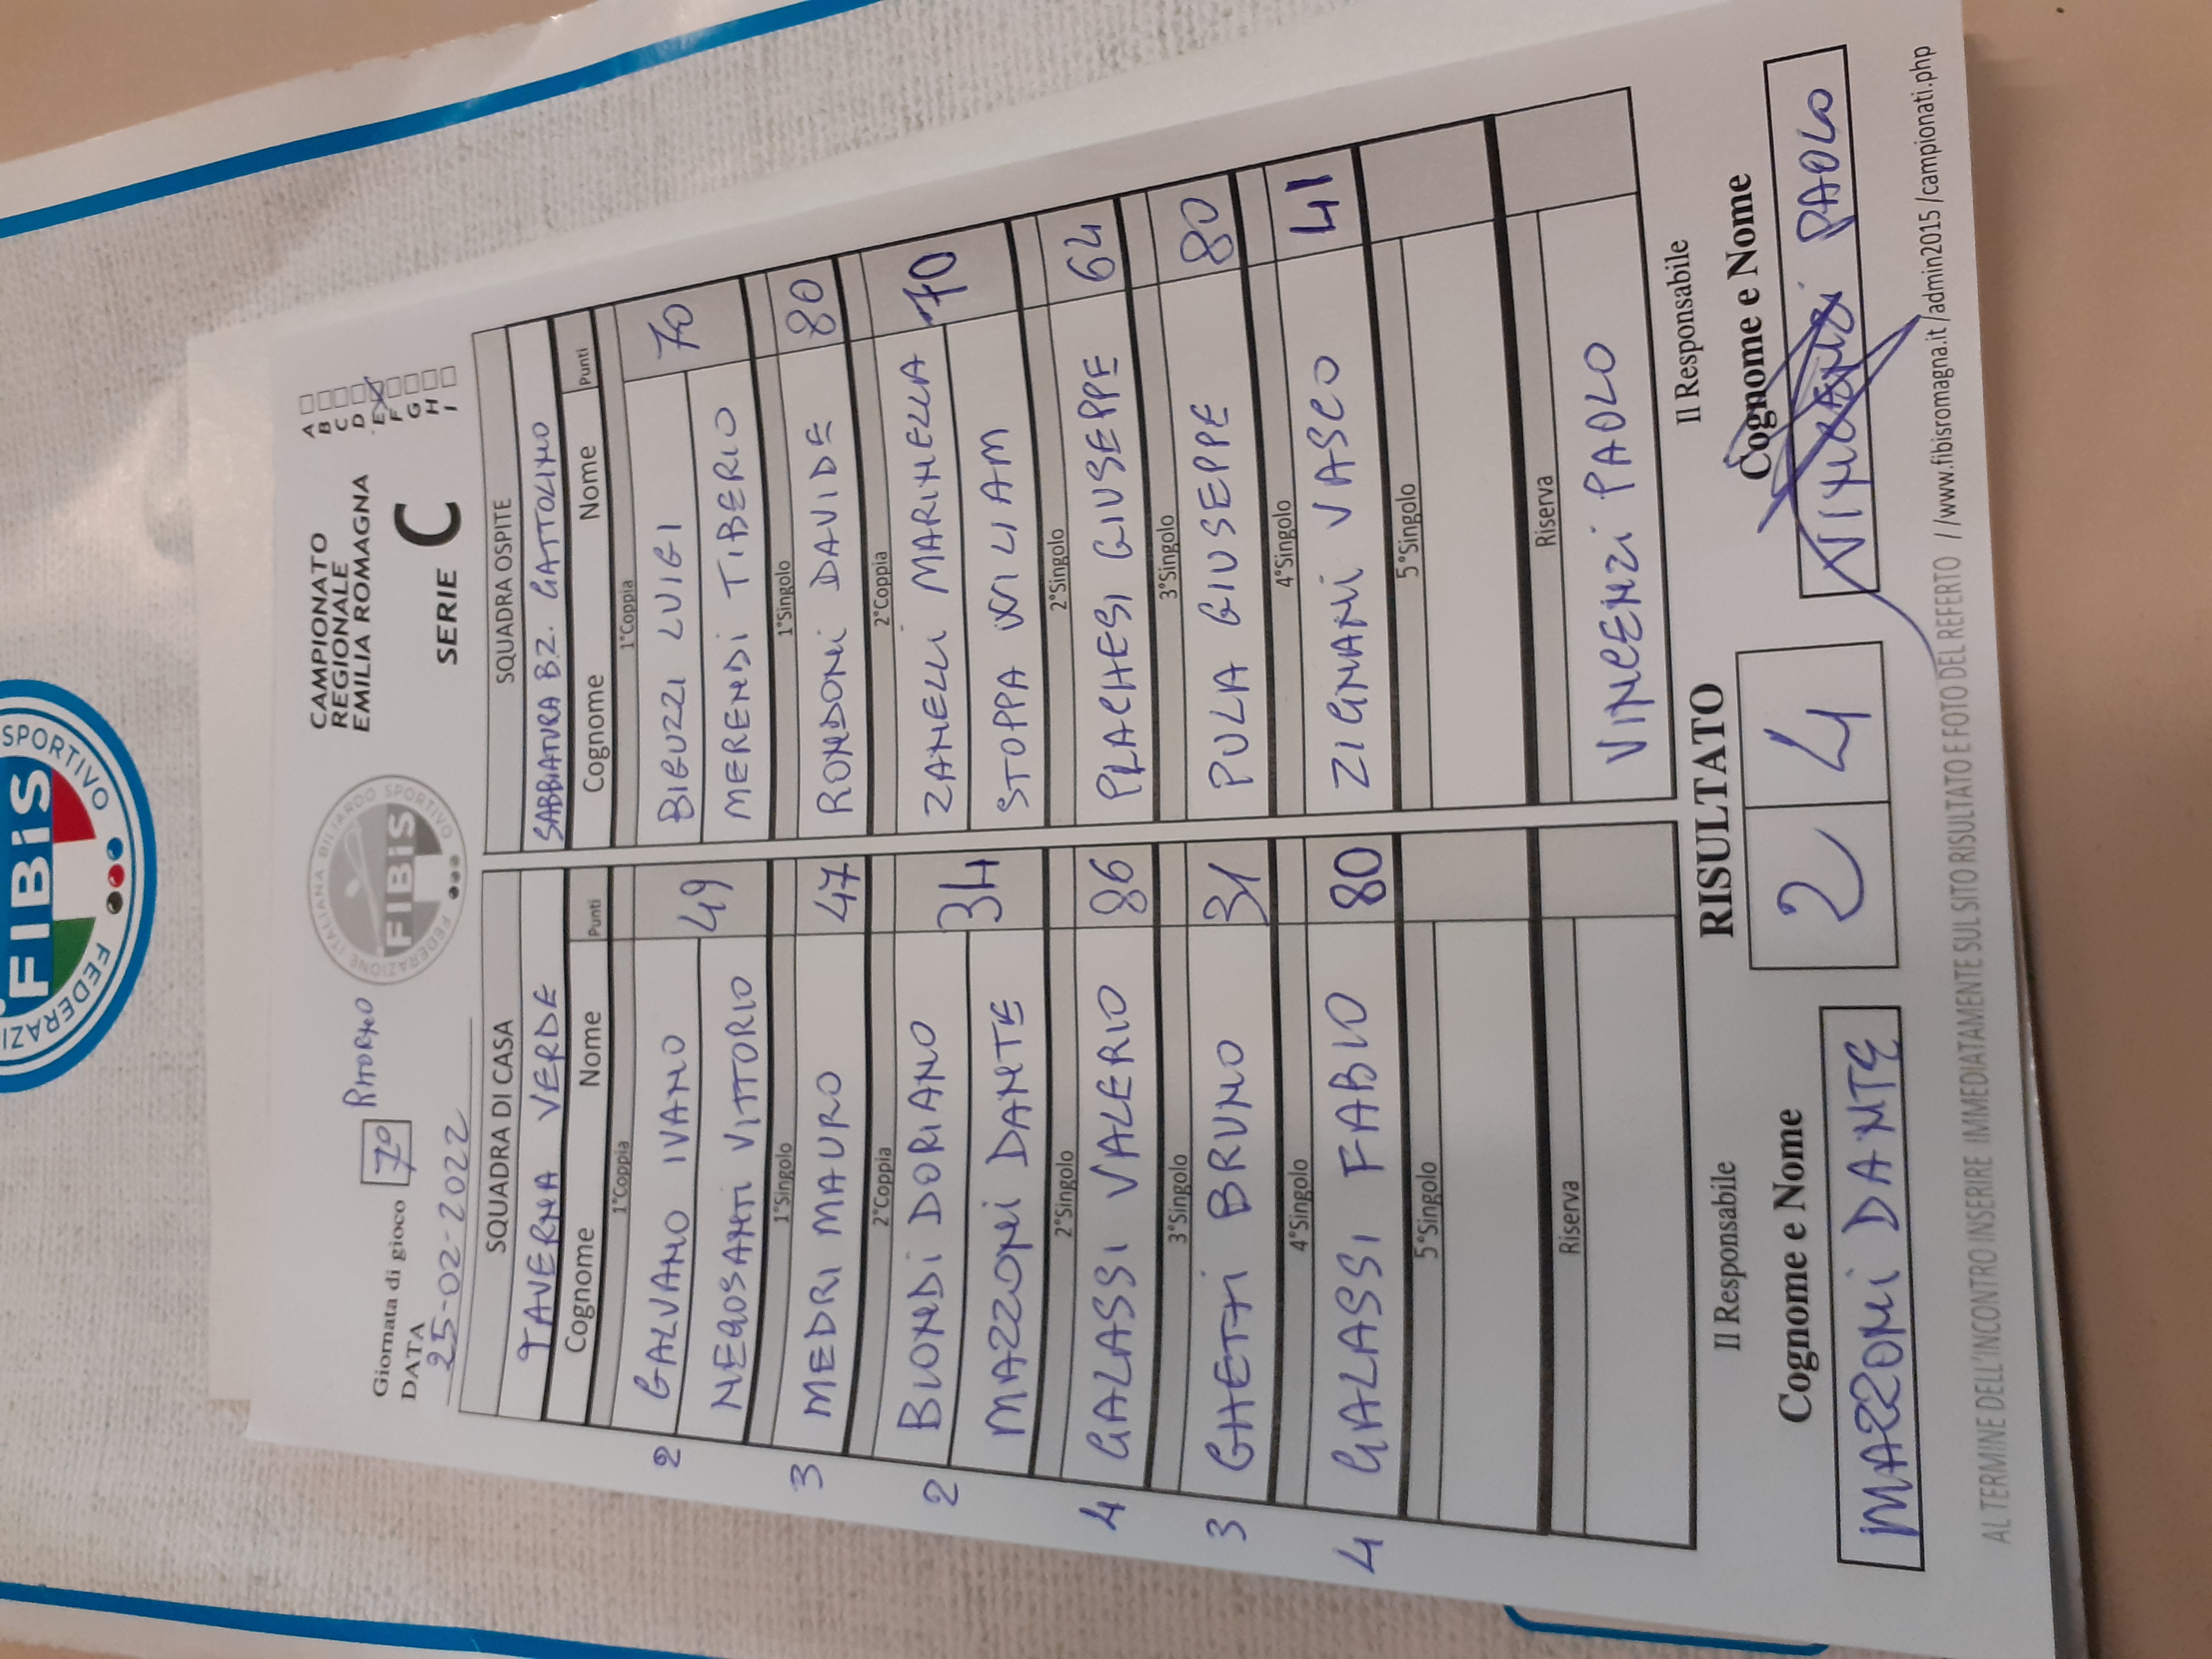 FEDERAZI SPORTIVO
FIBiS
Giornata di gioco 7° RITORNO
DATA
25-02-2022
FEDERAZIONE ITALIANA BILIARDO SPORTIVO
FIBiS
CAMPIONATO
REGIONALE
EMILIA ROMAGNA
SERIE C
A
B
C
D
E
F
G
H
I
SQUADRA DI CASA SQUADRA OSPITE
TAVERNA VERDE SABBIATURA BZ. GATTOLINO
Cognome Nome Punti Cognome Nome Punti
1°Coppia 1°Coppia
2 GALVANO IVANO 49 BIGUZZI LUIGI 70
NEGOSANTI VITTORIO MERENDI TIBERIO
1°Singolo 1°Singolo
3 MEDRI MAURO 47 RONDONI DAVIDE 80
2°Coppia 2°Coppia
2 BIONDI DORIANO 34 ZANELLI MARINELLA 70
MAZZONI DANTE STOPPA WILIAM
2°Singolo 2°Singolo
4 GALASSI VALERIO 86 PLACHESI GIUSEPPE 64
3°Singolo 3°Singolo
3 GHETTI BRUNO 31 PULA GIUSEPPE 80
4°Singolo 4°Singolo
4 GALASSI FABIO 80 ZIGNANI VASCO 41
5°Singolo 5°Singolo
Riserva Riserva
VINCENZI PAOLO
Il Responsabile RISULTATO Il Responsabile
Cognome e Nome 2 4 Cognome e Nome
MAZZONI DANTE VINCENZI PAOLO
AL TERMINE DELL'INCONTRO INSERIRE IMMEDIATAMENTE SUL SITO RISULTATO E FOTO DEL REFERTO //www.fibisromagna.it/admin2015/campionati.php